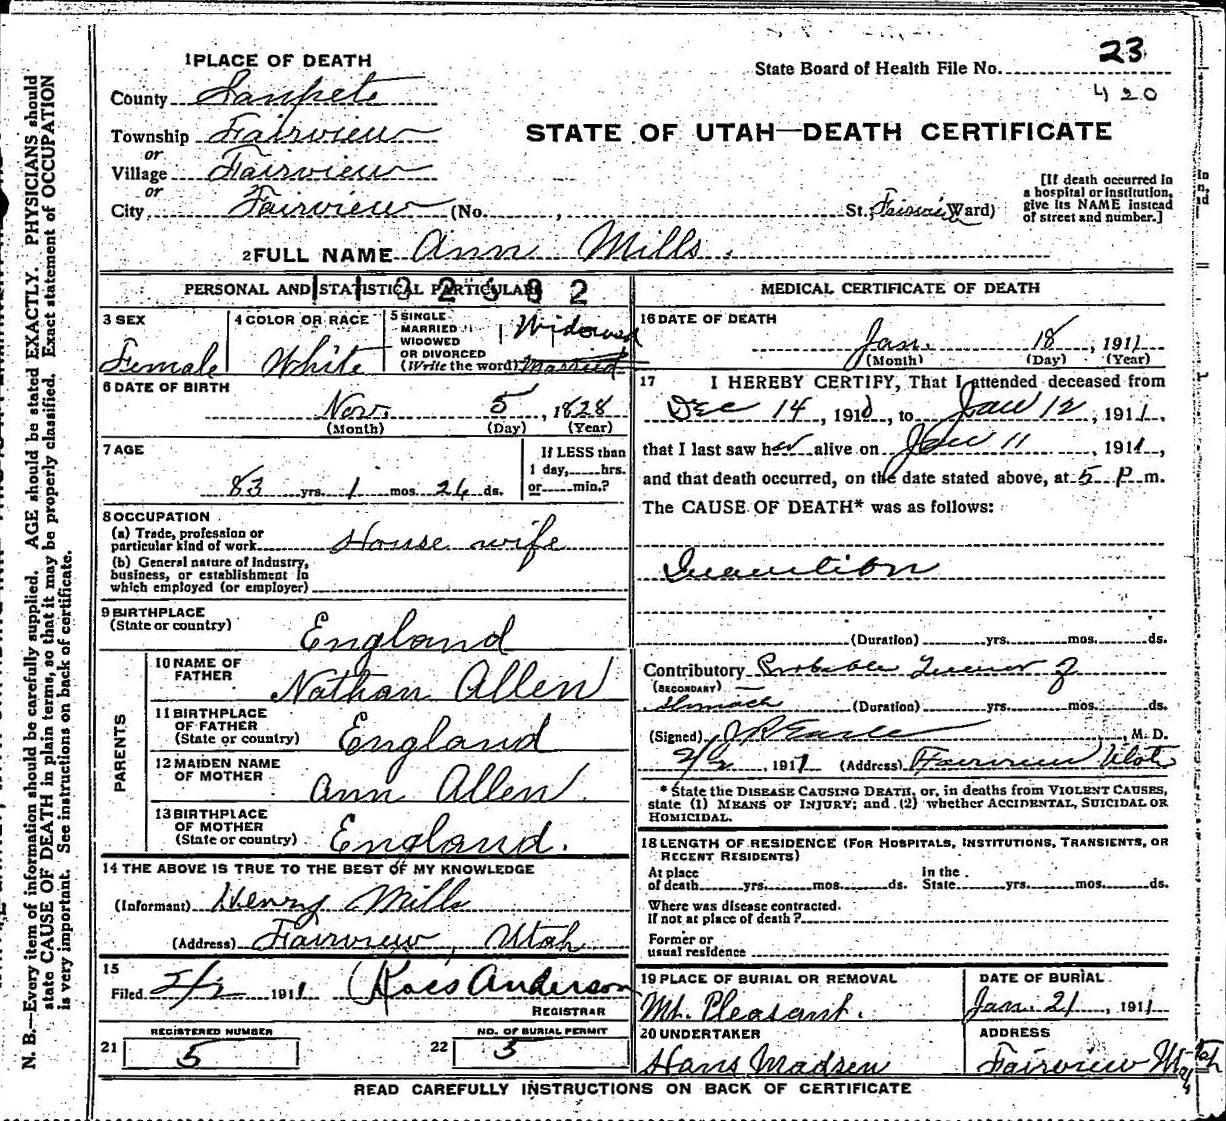 1 PLACE OF DEATH
County Sanpete
Township Fairview
or
Village Fairview
or
City Fairview (No. , St.; Fairview Ward)
State Board of Health File No. 23
420
STATE OF UTAH—DEATH CERTIFICATE
[If death occurred in
a hospital or institution,
give its NAME instead
of street and number.]
2 FULL NAME Ann Mills.
PERSONAL AND STATISTICAL PARTICULARS
3 SEX
Female
4 COLOR OR RACE
White
5 SINGLE
MARRIED
WIDOWED
OR DIVORCED
(Write the word) Married
Widowed
6 DATE OF BIRTH
Nov. 5, 1828
(Month) (Day) (Year)
7 AGE
83 yrs. 1 mos. 26 ds.
If LESS than
1 day, hrs.
or min.?
8 OCCUPATION
(a) Trade, profession or
particular kind of work House wife
(b) General nature of Industry,
business, or establishment in
which employed (or employer)
9 BIRTHPLACE
(State or country)
England
PARENTS
10 NAME OF
FATHER
Nathan Allen
11 BIRTHPLACE
OF FATHER
(State or country)
England
12 MAIDEN NAME
OF MOTHER
Ann Allen.
13 BIRTHPLACE
OF MOTHER
(State or country)
England.
14 THE ABOVE IS TRUE TO THE BEST OF MY KNOWLEDGE
(Informant) Henry Mills
(Address) Fairview, Utah
15
Filed 2/2 1911 Anderson
REGISTRAR
REGISTERED NUMBER
21 5
NO. OF BURIAL PERMIT
22 5
MEDICAL CERTIFICATE OF DEATH
16 DATE OF DEATH
Jan. 18, 1911
(Month) (Day) (Year)
17 I HEREBY CERTIFY, That I attended deceased from
Dec 14, 1910, to Jan 12, 1911,
that I last saw her alive on Jan 11, 1911,
and that death occurred, on the date stated above, at 5 P. m.
The CAUSE OF DEATH* was as follows:
Inanition
(Duration) yrs. mos. ds.
Contributory Probable of
(SECONDARY)
Stomach (Duration) yrs. mos. ds.
(Signed) M. D.
2/2, 1911 (Address) Fairview Utah
* State the DISEASE CAUSING DEATH, or, in deaths from VIOLENT CAUSES,
state (1) MEANS OF INJURY; and (2) whether ACCIDENTAL, SUICIDAL OR
HOMICIDAL.
18 LENGTH OF RESIDENCE (FOR HOSPITALS, INSTITUTIONS, TRANSIENTS, OR
RECENT RESIDENTS)
At place
of death yrs. mos. ds.
In the
State yrs. mos. ds.
Where was disease contracted.
If not at place of death?
Former or
usual residence
19 PLACE OF BURIAL OR REMOVAL
Mt. Pleasant.
DATE OF BURIAL
Jan. 21, 1911
20 UNDERTAKER
Hans Madsen
ADDRESS
Fairview Utah
READ CAREFULLY INSTRUCTIONS ON BACK OF CERTIFICATE
N. B.—Every item of information should be carefully supplied. AGE should be stated EXACTLY. PHYSICIANS should
state CAUSE OF DEATH in plain terms, so that it may be properly classified. Exact statement of OCCUPATION
is very important. See instructions on back of certificate.